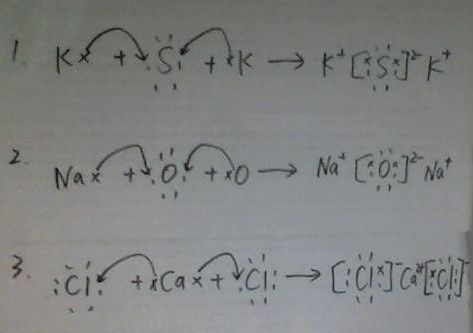 1. K× + ·S· + ×K → K⁺[×S×]²⁻K⁺
2. Na× + ·O· + ×O → Na⁺[×O×]²⁻Na⁺
3. :Cl· + ×Ca× + ·Cl: → [:Cl×]⁻Ca²⁺[×Cl:]⁻